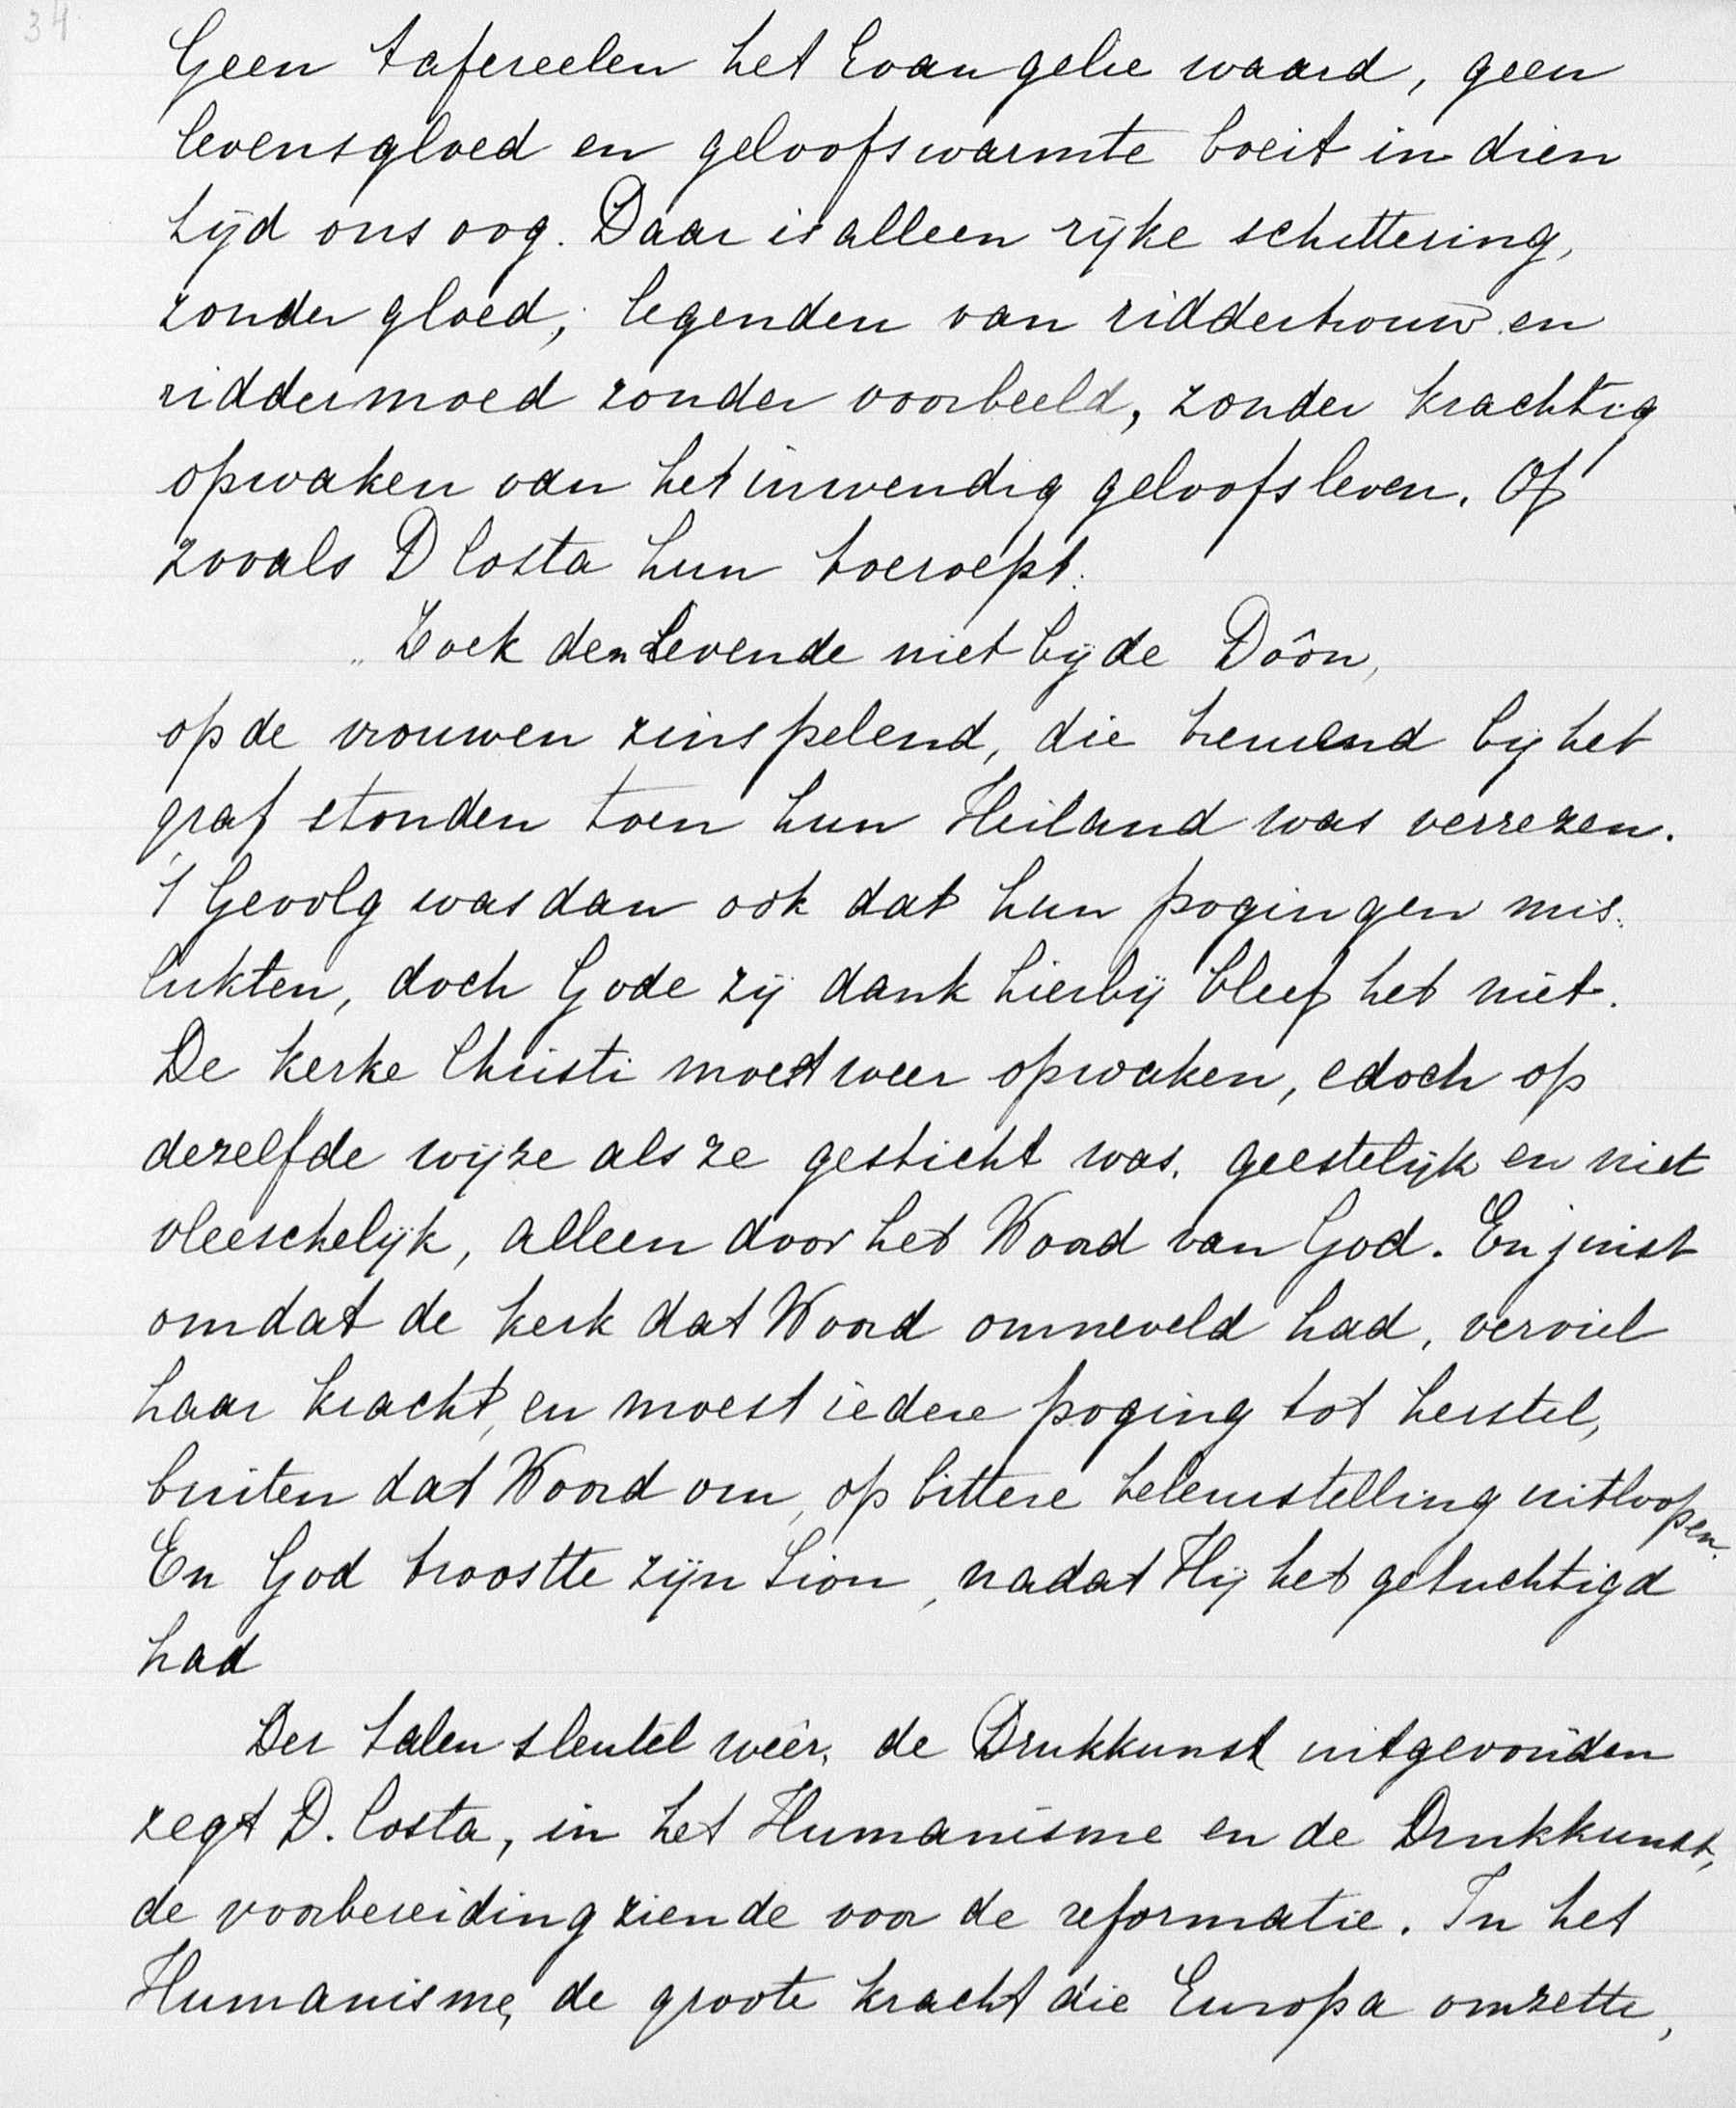 34
Geen tafereelen het Evangelie waard, geen
levensgloed en geloofswarmte boeit in dien
tijd ons oog. Daar is alleen rijke schittering,
zonder gloed; legenden van riddertrouw en
riddermoed zonder voorbeeld, zonder krachtig
opwaken van het inwendig geloofsleven. Of
zooals D Costa hun toeroept:
„Zoek den Levende niet bij de Dôôn,
op de vrouwen zinspelend, die treurend bij het
graf stonden toen hun Heiland was verrezen.
't Gevolg was dan ook dat hun pogingen mis-
lukten, doch Gode zij dank hierbij bleef het niet.
De kerke Christi moest weer opwaken, edoch op
dezelfde wijze als ze gesticht was, geestelijk en niet
vleeschelijk, alleen door het Woord van God. En juist
omdat de kerk dat Woord omneveld had, verviel
haar kracht, en moest iedere poging tot herstel,
buiten dat Woord om, op bittere teleurstelling uitloopen.
En God troostte zijn Sion, nadat Hij het getuchtigd
had
Der talen sleutel weêr, de Drukkunst uitgevonden
zegt D. Costa, in het Humanisme en de Drukkunst,
de voorbereiding ziende voor de reformatie. In het
Humanisme, de groote kracht die Europa omzette,